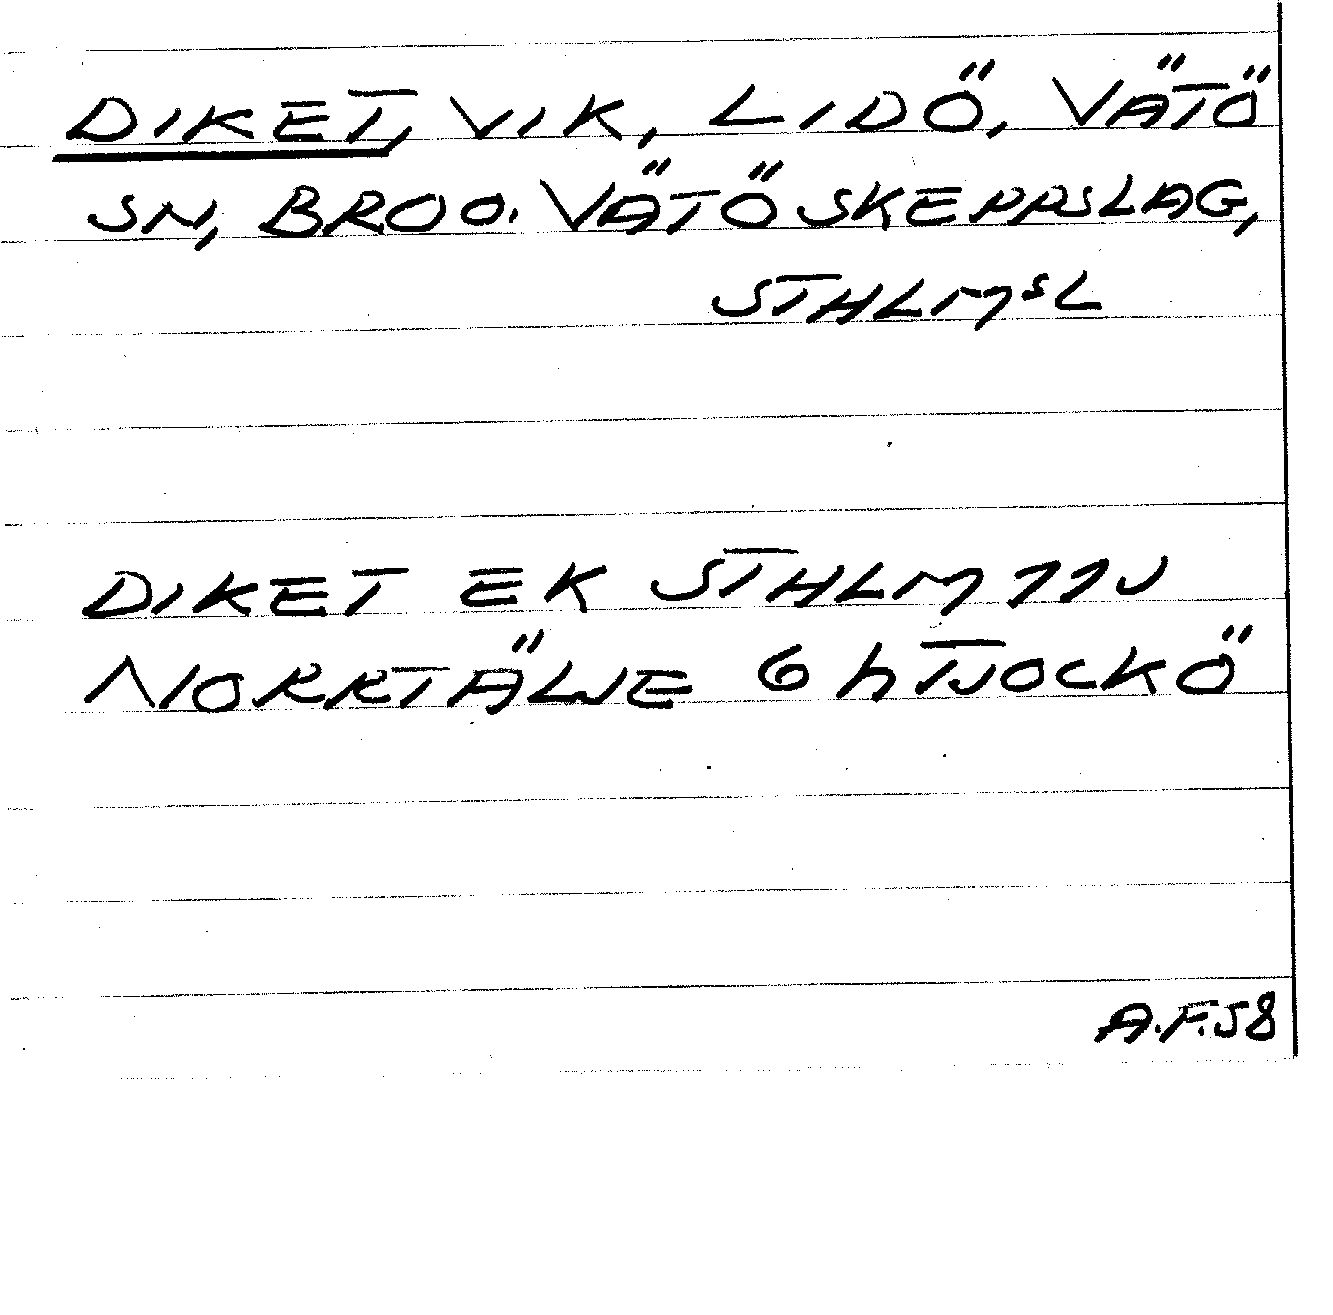 DIKET, VIK, LIDÖ, VÄTÖ
SN, BRO O. VÄTÖ SKEPPSLAG,
STHLMSL
DIKET EK STHLM 11 NV
NORRTÄLJE 6 h TJOCKÖ
A.F.58